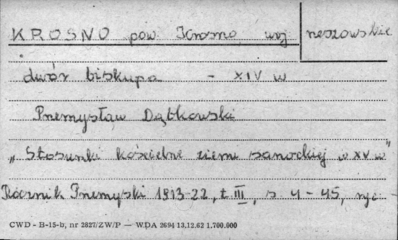 KROSNO pow. Krosno, woj rzeszowskie
dwór biskupa - XIV w
Przemysław Dąbkowski
„Stosunki kościelne ziemi sanockiej w XV w"
Rocznik Przemyski 1913-22, t. III, s 4-45, ryc.
CWD - B-15-b, nr 2827/ZW/P — WDA 2694 13.12.62 1.700.000